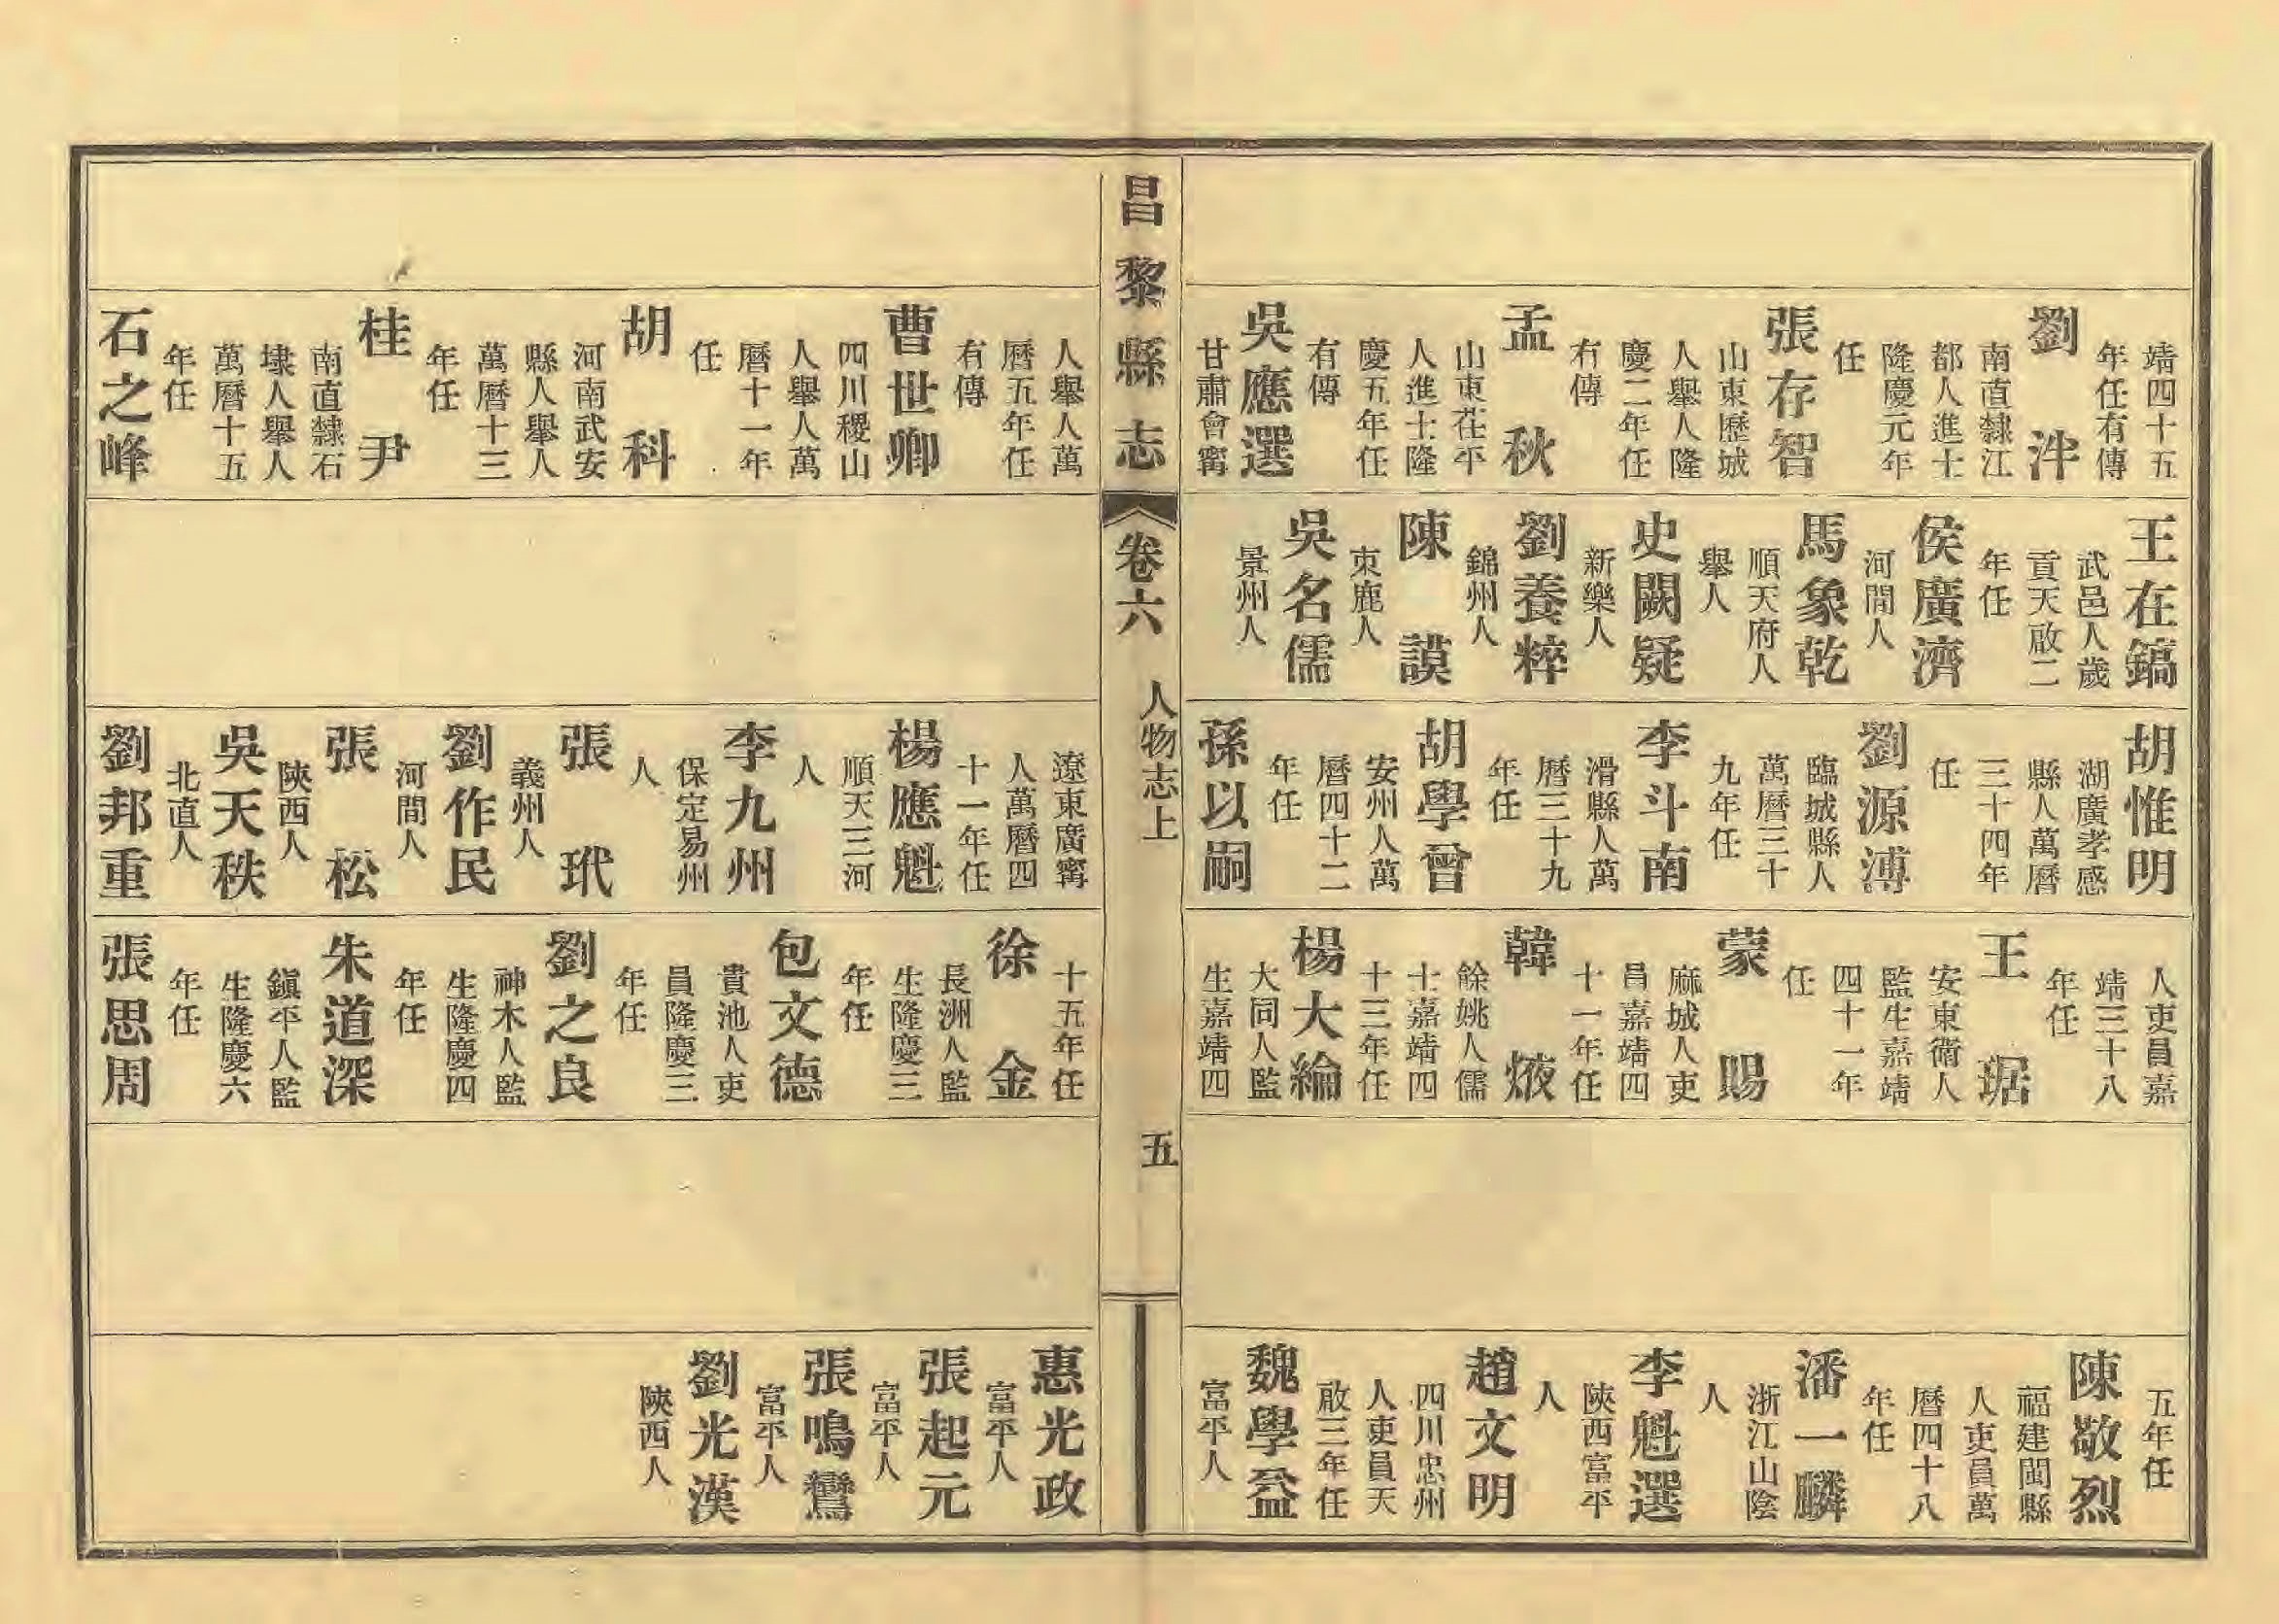 靖四十五
年任有傳
劉泮
南直隸江
都人進士
隆慶元年
任
張存智
山東歷城
人舉人隆
慶二年任
有傳
孟秋
山東茌平
人進士隆
慶五年任
有傳
吳應選
甘肅會甯
王在鎬
武邑人歲
貢天啟二
年任
侯廣濟
河間人
馬象乾
順天府人
舉人
史闕疑
新樂人
劉養粹
錦州人
陳謨
束鹿人
吳名儒
景州人
胡惟明
湖廣孝感
縣人萬曆
三十四年
任
劉源溥
臨城縣人
萬曆三十
九年任
李斗南
滑縣人萬
曆三十九
年任
胡學曾
安州人萬
曆四十二
年任
孫以嗣
人吏員嘉
靖三十八
年任
王琚
安東衛人
監生嘉靖
四十一年
任
蒙賜
麻城人吏
員嘉靖四
十一年任
韓焲
餘姚人儒
士嘉靖四
十三年任
楊大綸
大同人監
生嘉靖四
五年任
陳敬烈
福建閩縣
人吏員萬
曆四十八
年任
潘一麟
浙江山陰
人
李魁選
陝西富平
人
趙文明
四川忠州
人吏員天
啟三年任
魏學益
富平人
昌黎縣志
卷六
人物志上
五
人舉人萬
曆五年任
有傳
曹世卿
四川稷山
人舉人萬
曆十一年
任
胡科
河南武安
縣人舉人
萬曆十三
年任
桂尹
南直隸石
埭人舉人
萬曆十五
年任
石之峰
遼東廣甯
人萬曆四
十一年任
楊應魁
順天三河
人
李九州
保定易州
人
張玳
義州人
劉作民
河間人
張松
陝西人
吳天秩
北直人
劉邦重
十五年任
徐金
長洲人監
生隆慶三
年任
包文德
貴池人吏
員隆慶三
年任
劉之良
神木人監
生隆慶四
年任
朱道深
鎮平人監
生隆慶六
年任
張思周
惠光政
富平人
張起元
富平人
張鳴鸞
富平人
劉光漢
陝西人